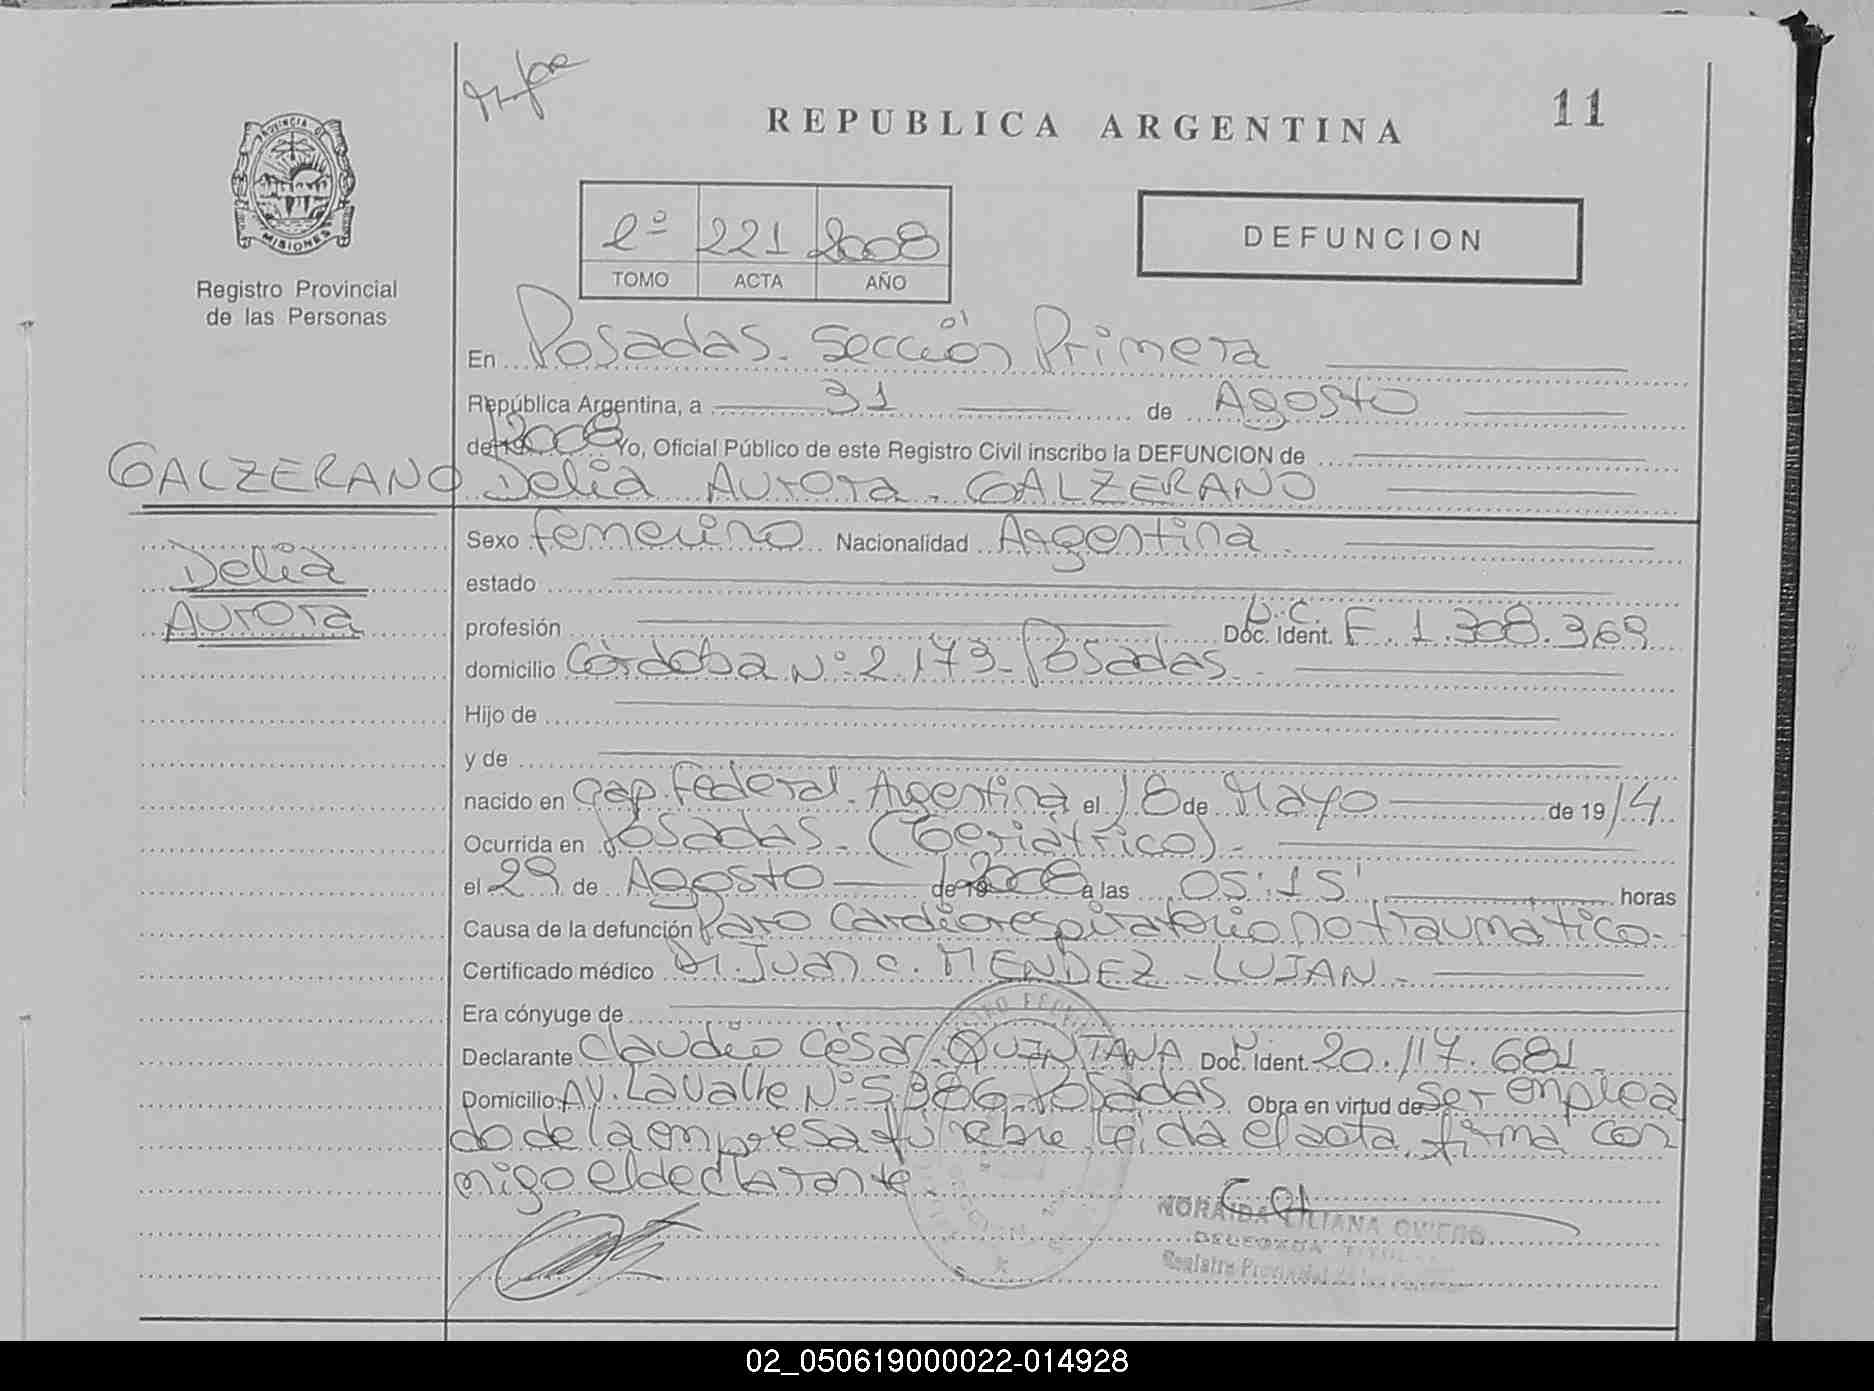 REPUBLICA ARGENTINA
11
PROVINCIA DE
MISIONES
Registro Provincial
de las Personas
2º 221 2008
TOMO ACTA AÑO
DEFUNCION
En Posadas. Sección Primera
República Argentina, a 31 de Agosto
de 2008 Yo, Oficial Público de este Registro Civil inscribo la DEFUNCION de
GALZERANO Delia Aurora. GALZERANO
Delia
Aurora
Sexo femenino Nacionalidad Argentina.
estado
profesión Doc. Ident. L.C. F. 1.308.369
domicilio Córdoba Nº 2.173- Posadas.
Hijo de
y de
nacido en Cap. Federal. Argentina el 18 de Mayo de 19 14.
Ocurrida en Posadas. (Geriátrico).
el 29 de Agosto de 2008 a las 05:15' horas
Causa de la defunción Paro Cardiorespiratorio no traumático.
Certificado médico Dr. Juan C. MENDEZ - LUJAN.
Era cónyuge de
Declarante Claudio César QUINTANA Doc. Ident. 20.117.681
Domicilio Av. Lavalle Nº 5386. Posadas Obra en virtud de ser emplea
do de la empresa fúnebre. Leída el acta, firma con
migo el declarante.
NORAIDA LILIANA OVIEDO
DELEGADA TITULAR
Registro Provincial de las Personas
02_050619000022-014928